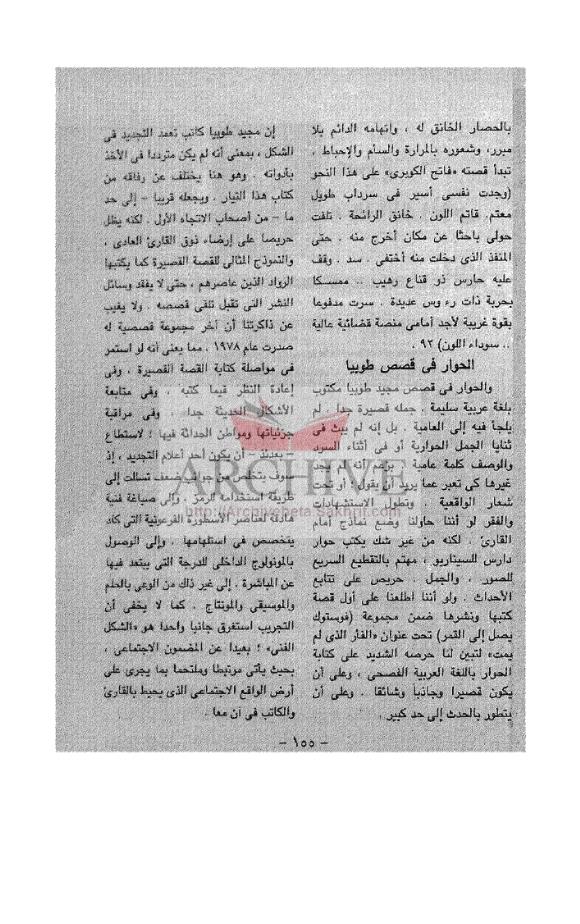 بالحصار الخانق له ، واتهامه الدائم بلا
مبرر، وشعوره بالمرارة والسأم والإحباط .
تبدأ قصته «فاتح الكوبرى» على هذا النحو
(وجدت نفسى أسير فى سرداب طويل
معتم. قاتم اللون . خانق الرائحة . تلفت
حولى باحثا عن مكان أخرج منه . حتى
المنفذ الذى دخلت منه أختفى . سد . وقف
عليه حارس ذو قناع رهيب .. ممسكا
بحربة ذات رءوس عديدة . سرت مدفوعا
بقوة غريبة لأجد أمامى منصة قضائية عالية
.. سوداء اللون) ٩٢ .
الحوار فى قصص طوبيا
والحوار فى قصص مجيد طوبيا مكتوب
بلغة عربية سليمة . جمله قصيرة جدا . لم
يلجأ فيه إلى العامية . بل إنه لم يبث فى
ثنايا الجمل الحوارية أو فى أثناء السرد
والوصف كلمة عامية ، بزعم أنه لا يجد
غيرها كى تعبر عما يريد أن يقول؛ أو تحت
شعار الواقعية . وتطول الاستشهادات
والفقر لو أننا حاولنا وضع نماذج أمام
القارئ . لكنه من غير شك يكتب حوار
دارس للسيناريو ، مهتم بالتقطيع السريع
للصور . والجمل . حريص على تتابع
الأحداث . ولو أننا اطلعنا على أول قصة
كتبها ونشرها ضمن مجموعة (فوستوك
يصل إلى القمر) تحت عنوان «الفأر الذى لم
يمت» لتبين لنا حرصه الشديد على كتابة
الحوار باللغة العربية الفصحى ، وعلى أن
يكون قصيرا وجاذبا وشائقا . وعلى أن
يتطور بالحدث إلى حد كبير .
إن مجيد طوبيا كاتب تعمد التجديد فى
الشكل ، بمعنى أنه لم يكن مترددا فى الأخذ
بأدواته . وهو هنا يختلف عن رفاقه من
كتاب هذا التيار . ويجعله قريبا - إلى حد
ما - من أصحاب الاتجاه الأول . لكنه يظل
حريصا على إرضاء ذوق القارئ العادى ،
والنموذج المثالى للقصة القصيرة كما يكتبها
الرواد الذين عاصرهم ، حتى لا يفقد وسائل
النشر التى تقبل تلقى قصصه . ولا يغيب
عن ذاكرتنا أن آخر مجموعة قصصية له
صدرت عام ١٩٧٨ . مما يعنى أنه لو استمر
فى مواصلة كتابة القصة القصيرة ، وفى
إعادة النظر فيما كتبه . وفى متابعة
الأشكال الحديثة جدا . وفى مراقبة
جزئياتها ومواطن الحداثة فيها ؛ لاستطاع
- بعدئذ - أن يكون أحد أعلام التجديد ، إذ
سوف يتخلص من جوانب ضعف تسللت إلى
طريقة استخدامه للرمز . وإلى صياغة فنية
هادئة لعناصر الأسطورة الفرعونية التى كاد
يتخصص فى استلهامها . وإلى الوصول
بالمونولوج الداخلى للدرجة التى يبتعد فيها
عن المباشرة . إلى غير ذلك من الوعى بالحلم
والموسيقى والمونتاج . كما لا يخفى أن
التجريب استغرق جانبا واحدا هو «الشكل
الفنى» ؛ بعيدا عن المضمون الاجتماعى ،
بحيث يأتى مرتبطا وملتحما بما يجرى على
أرض الواقع الاجتماعى الذى يحيط بالقارئ
والكاتب فى آن معا .
- ١٥٥ -
ARCHIVE
http://Archivebeta.Sakhrit.com